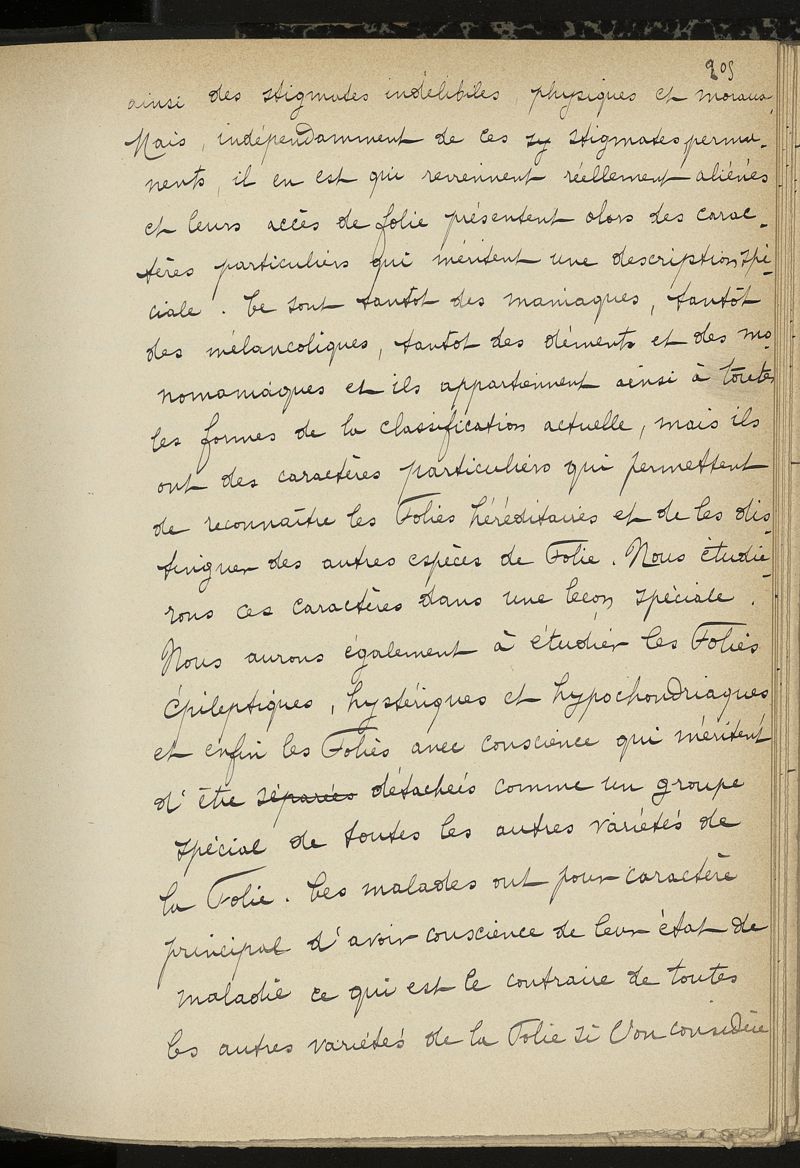 205
ainsi des stigmates indélébiles, physiques et moraux.
Mais, indépendamment de ces sy stigmates perma-
nents, il en est qui reviennent réellement aliénés
et leurs accès de folie présentent alors des carac-
tères particuliers qui méritent une description spé-
ciale. Ce sont tantôt des maniaques, tantôt
des mélancoliques, tantot des déments et des mo-
nomaniaques et ils appartiennent ainsi à toutes
les formes de la classification actuelle, mais ils
ont des caractères particuliers qui permettent
de reconnaître les Folies héréditaires et de les dis-
tinguer des autres espèces de Folie. Nous étudie-
rons ces caractères dans une leçon spéciale.
Nous aurons également à étudier les Folies
épileptiques, hystériques et hypochondriaques
et enfin les Folies avec conscience qui méritent
d'être séparées détachées comme un groupe
spécial de toutes les autres variétés de
la Folie. Ces malades ont pour caractère
principal d'avoir conscience de leur état de
maladie ce qui est le contraire de toutes
les autres variétés de la Folie si l'on considère